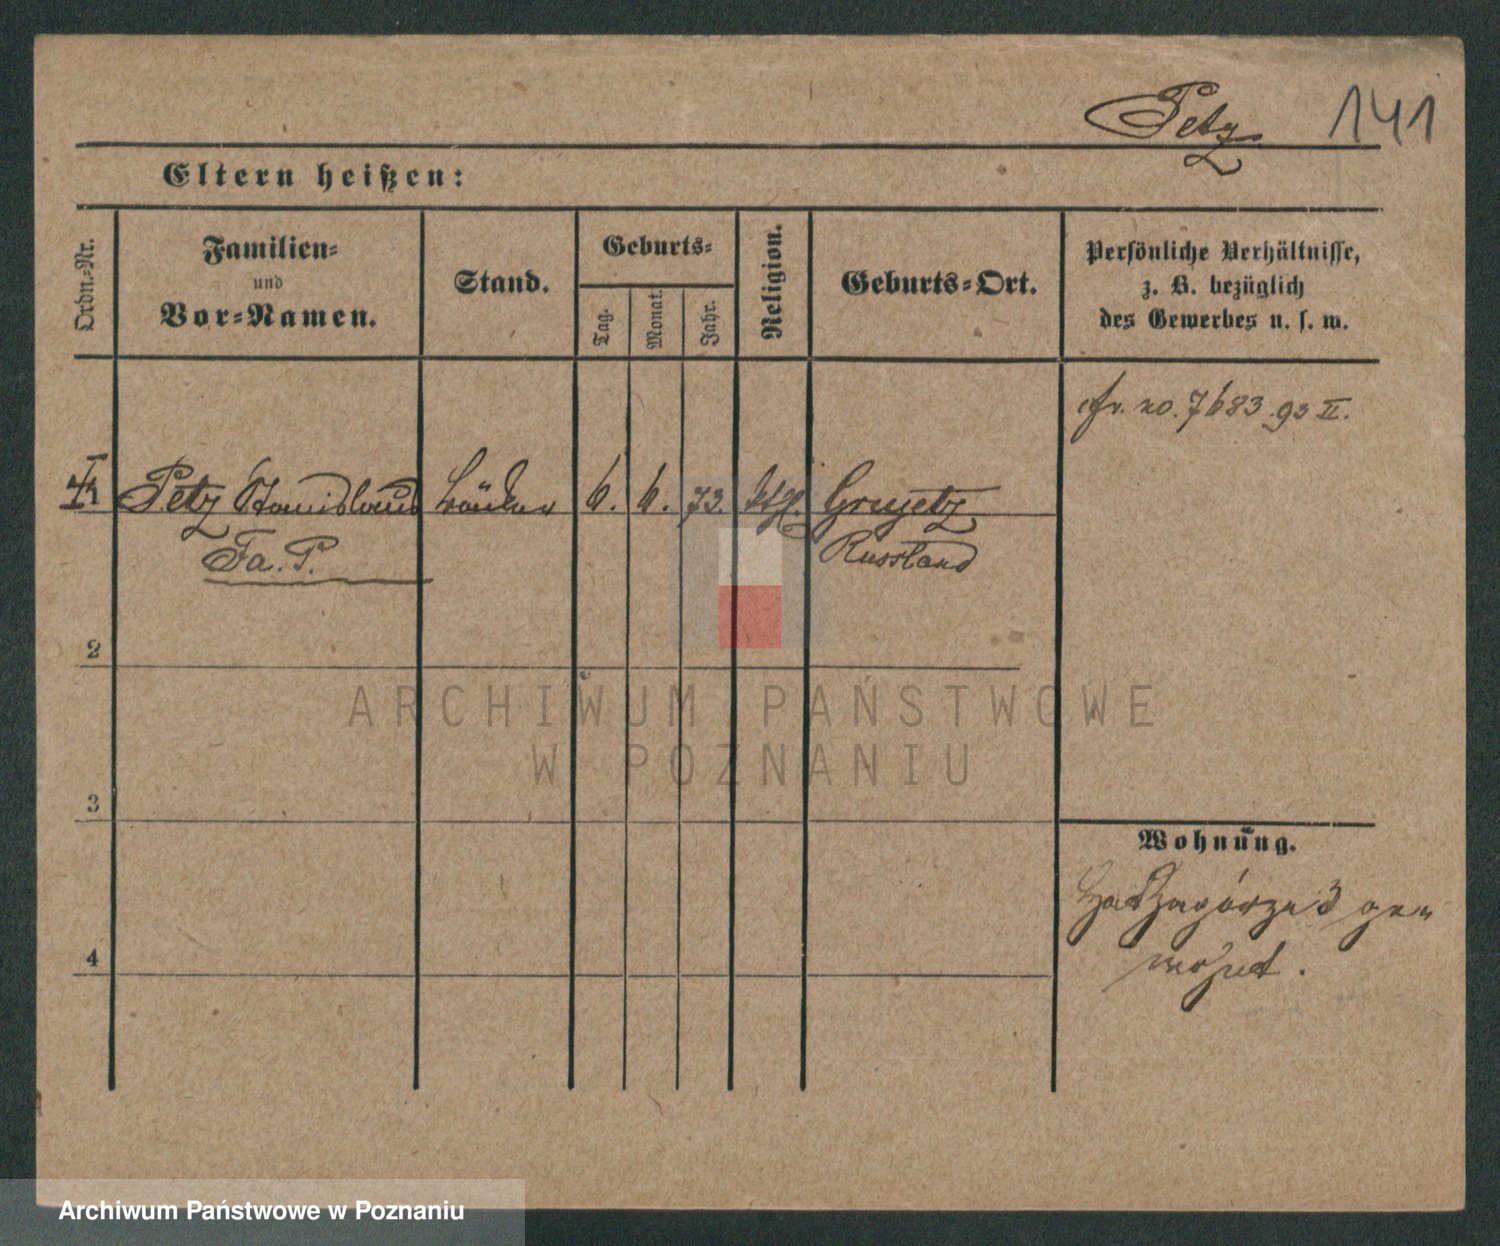 Petz 141
Eltern heißen:
Ordn.-Nr.
Familien-
und
Vor-Namen.
Stand.
Geburts-
Tag.
Monat.
Jahr.
Religion.
Geburts-Ort.
Persönliche Verhältnisse,
z. B. bezüglich
des Gewerbes u. s. w.
no. 7683.93 II.
Petz Stanislaus 6. 6. 73. Grujetz
Fa. P. Russland
2
3
4
Wohnung.
3
ARCHIWUM PAŃSTWOWE
W POZNANIU
Archiwum Państwowe w Poznaniu